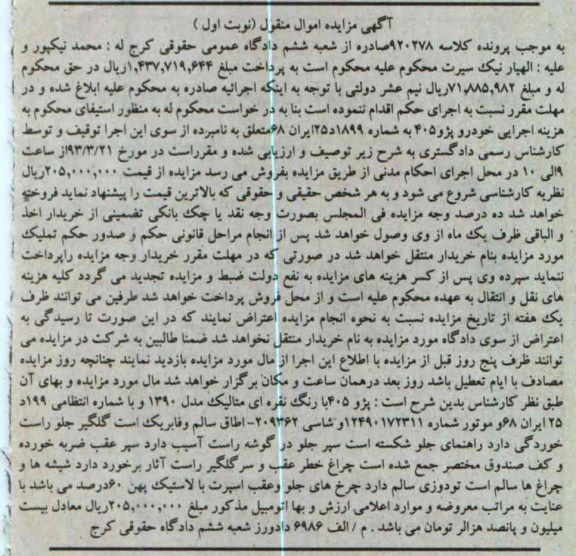 آگهی مزایده اموال منقول (نوبت اول)
به موجب پرونده کلاسه ۹۲۰۲۷۸صادره از شعبه ششم دادگاه عمومی حقوقی کرج له : محمد نیکپور و
علیه : الهیار نیک سیرت محکوم علیه محکوم است به پرداخت مبلغ ۱,۴۳۷,۷۱۹,۶۴۴ریال در حق محکوم
له و مبلغ ۷۱,۸۸۵,۹۸۲ریال نیم عشر دولتی با توجه به اینکه اجرائیه صادره به محکوم علیه ابلاغ شده و در
مهلت مقرر نسبت به اجرای حکم اقدام ننموده است بنا به در خواست محکوم له به منظور استیفای محکوم به
هزینه اجرایی خودرو پژو۴۰۵ به شماره ۱۸۹۹د۲۵ایران ۶۸متعلق به نامبرده از سوی این اجرا توقیف و توسط
کارشناس رسمی دادگستری به شرح زیر توصیف و ارزیابی شده و مقرراست در مورخ ۹۳/۳/۲۱از ساعت
۹الی ۱۰ در محل اجرای احکام مدنی از طریق مزایده بفروش می رسد مزایده از قیمت ۲۰۵,۰۰۰,۰۰۰ریال
نظریه کارشناسی شروع می شود و به هر شخص حقیقی و حقوقی که بالاترین قیمت را پیشنهاد نماید فروخته
خواهد شد ده درصد وجه مزایده فی المجلس بصورت وجه نقد یا چک بانکی تضمینی از خریدار اخذ
و الباقی ظرف یک ماه از وی وصول خواهد شد پس از انجام مراحل قانونی حکم و صدور حکم تملیک
مورد مزایده بنام خریدار منتقل خواهد شد در صورتی که در مهلت مقرر خریدار وجه مزایده راپرداخت
ننماید سپرده وی پس از کسر هزینه های مزایده به نفع دولت ضبط و مزایده تجدید می گردد کلیه هزینه
های نقل و انتقال به عهده محکوم علیه است و از محل فروش پرداخت خواهد شد طرفین می توانند ظرف
یک هفته از تاریخ مزایده نسبت به نحوه انجام مزایده اعتراض نمایند که در این صورت تا رسیدگی به
اعتراض از سوی دادگاه مورد مزایده به نام خریدار منتقل نخواهد شد ضمنا طالبین به شرکت در مزایده می
توانند ظرف پنج روز قبل از مزایده با اطلاع این اجرا از مال مورد مزایده بازدید نمایند چنانچه روز مزایده
مصادف با ایام تعطیل باشد روز بعد درهمان ساعت و مکان برگزار خواهد شد مال مورد مزایده و بهای آن
طبق نظر کارشناس بدین شرح است : پژو ۴۰۵با رنگ نقره ای متالیک مدل ۱۳۹۰ و با شماره انتظامی ۱۹۹د
۲۵ایران ۶۸و موتور شماره ۱۲۴۹۰۱۷۲۳۱۱و شاسی ۲۰۹۳۶۲-اطاق سالم وفابریک است گلگیر جلو راست
خوردگی دارد راهنمای جلو شکسته است سپر جلو در گوشه راست آسیب دارد سپر عقب ضربه خورده
و کف صندوق مختصر جمع شده است چراغ خطر عقب و سرگلگیر راست آثار برخورد دارد شیشه ها و
چراغ ها سالم است تودوزی سالم دارد چرخ های جلو وعقب اسپرت با لاستیک پهن ۶۰درصد می باشد با
عنایت به مراتب معروضه و موارد اعلامی ارزش و بها اتومبیل مذکور مبلغ ۲۰۵,۰۰۰,۰۰۰ریال معادل بیست
میلیون و پانصد هزالر تومان می باشد . م / الف ۶۹۸۶ دادورز شعبه ششم دادگاه حقوقی کرج